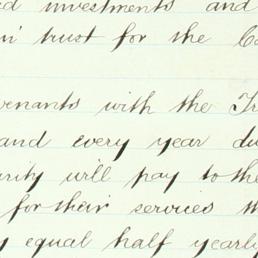 investments and
in trust for the
venants with the
and every year
rity will pay to the
for their services
equal half yearly